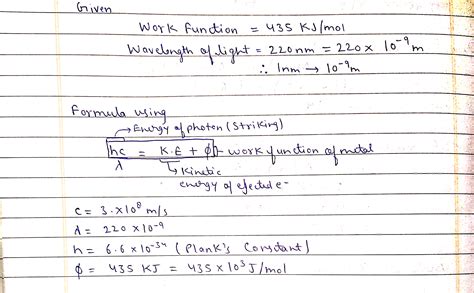 Given
Work Function = 435 KJ/mol
Wavelength of light = 220nm = 220 x 10⁻⁹ m
∴ 1nm → 10⁻⁹m
Formula using
→ Energy of photon (Striking)
hc/λ = K.E + ϕ → work function of metal
↳ Kinetic
energy of ejected e-
c = 3. x 10⁸ m/s
λ = 220 x 10⁻⁹
h = 6.6 x 10⁻³⁴ (Plank's Constant)
ϕ = 435 KJ = 435 x 10³ J/mol